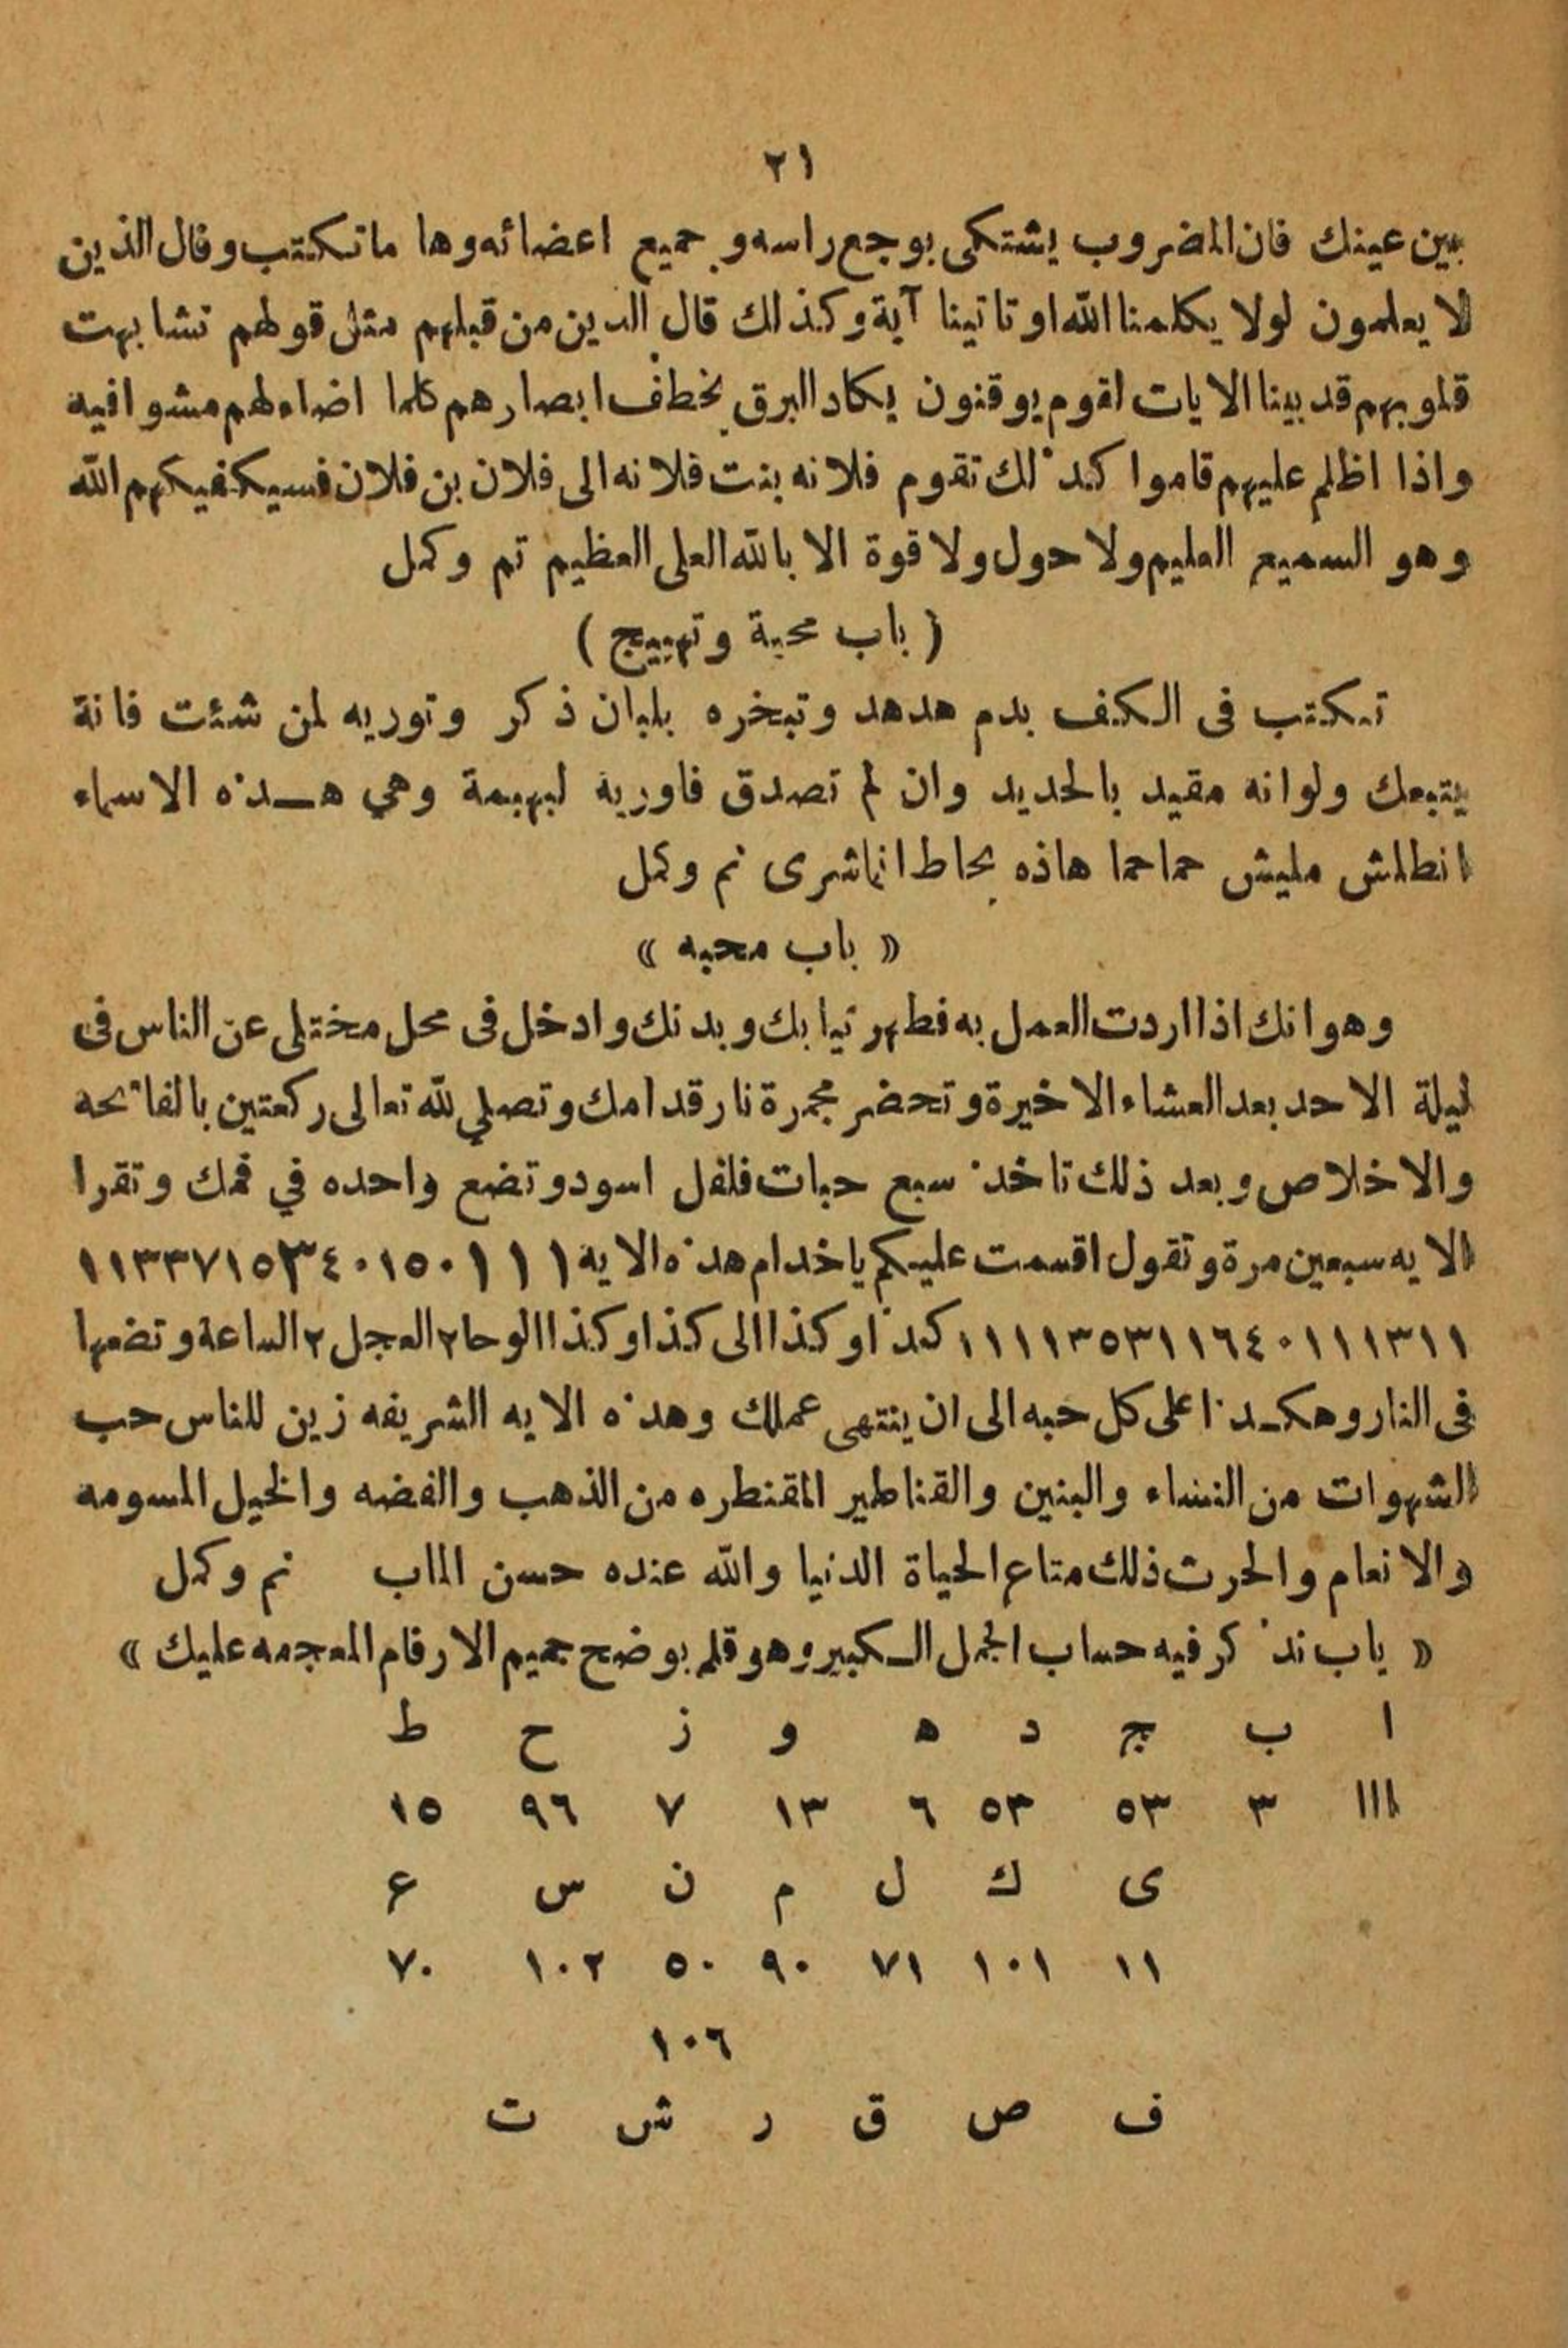 ٢١
بين عينك فان المضروب يشتكى بوجع راسه و جميع اعضائه وها ما تكتب وقال الذين
لا يعلمون لولا يكلمنا الله او تاتينا آية وكذلك قال الدين من قبلهم مثل قولهم تشابهت
قلوبهم قد بينا الايات لقوم يوقنون يكاد البرق يخطف ابصارهم كلما اضاء لهم مشوا فيه
واذا اظلم عليهم قاموا كذلك تقوم فلانه بنت فلانه الى فلان بن فلان فسيكفيكهم الله
وهو السميع العليم ولا حول ولا قوة الا بالله العلى العظيم تم وكمل
( باب محبة وتهييج )
تكتب فى الكف بدم هدهد وتبخره بلبان ذكر وتوريه لمن شئت فانة
يتبعك ولوانه مقيد بالحديد وان لم تصدق فاوريه لبهيمة وهي هـذه الاسماء
انطلش مليش حماحما هاذه بحاط انماشرى تم وكمل
« باب محبه »
وهو انك اذا اردت العمل به فطهر ثيابك وبدنك وادخل فى محل مختلى عن الناس فى
ليلة الاحد بعد العشاء الاخيرة وتحضر مجمرة نار قدامك وتصلي لله تعالى ركعتين بالفاتحه
والاخلاص وبعد ذلك تاخذ سبع حبات فلفل اسود وتضع واحده في فمك وتقرا
الايه سبعين مرة وتقول اقسمت عليكم ياخدام هذه الايه ١١١٠١٥٠٣٤٠١٥٣٧١٥ ١١٣٣
١١١١٣٥٣١١٦٤٠١١١٣١١ كذا وكذا الى كذا وكذا الوحا٢ العجل ٢ الساعة وتضعها
فى النار وهكـذا على كل حبه الى ان ينتهى عملك وهذه الايه الشريفه زين للناس حب
الشهوات من النساء والبنين والقناطير المقنطره من الذهب والفضه والخيل المسومه
والانعام والحرث ذلك متاع الحياة الدنيا والله عنده حسن الماب تم وكمل
« باب نذكر فيه حساب الجمل الـكبير وهو قلم يوضح جميع الارقام المعجمه عليك »
ا ب ج د ه و ز ح ط
١١١ ٣ ٥٣ ٥٣ ٦ ١٣ ٧ ٩٦ ١٥
ى ك ل م ن س ع
١١ ١٠١ ٧١ ٩٠ ٥٠ ١٠٢ ٧٠
١٠٦
ف ص ق ر ش ت